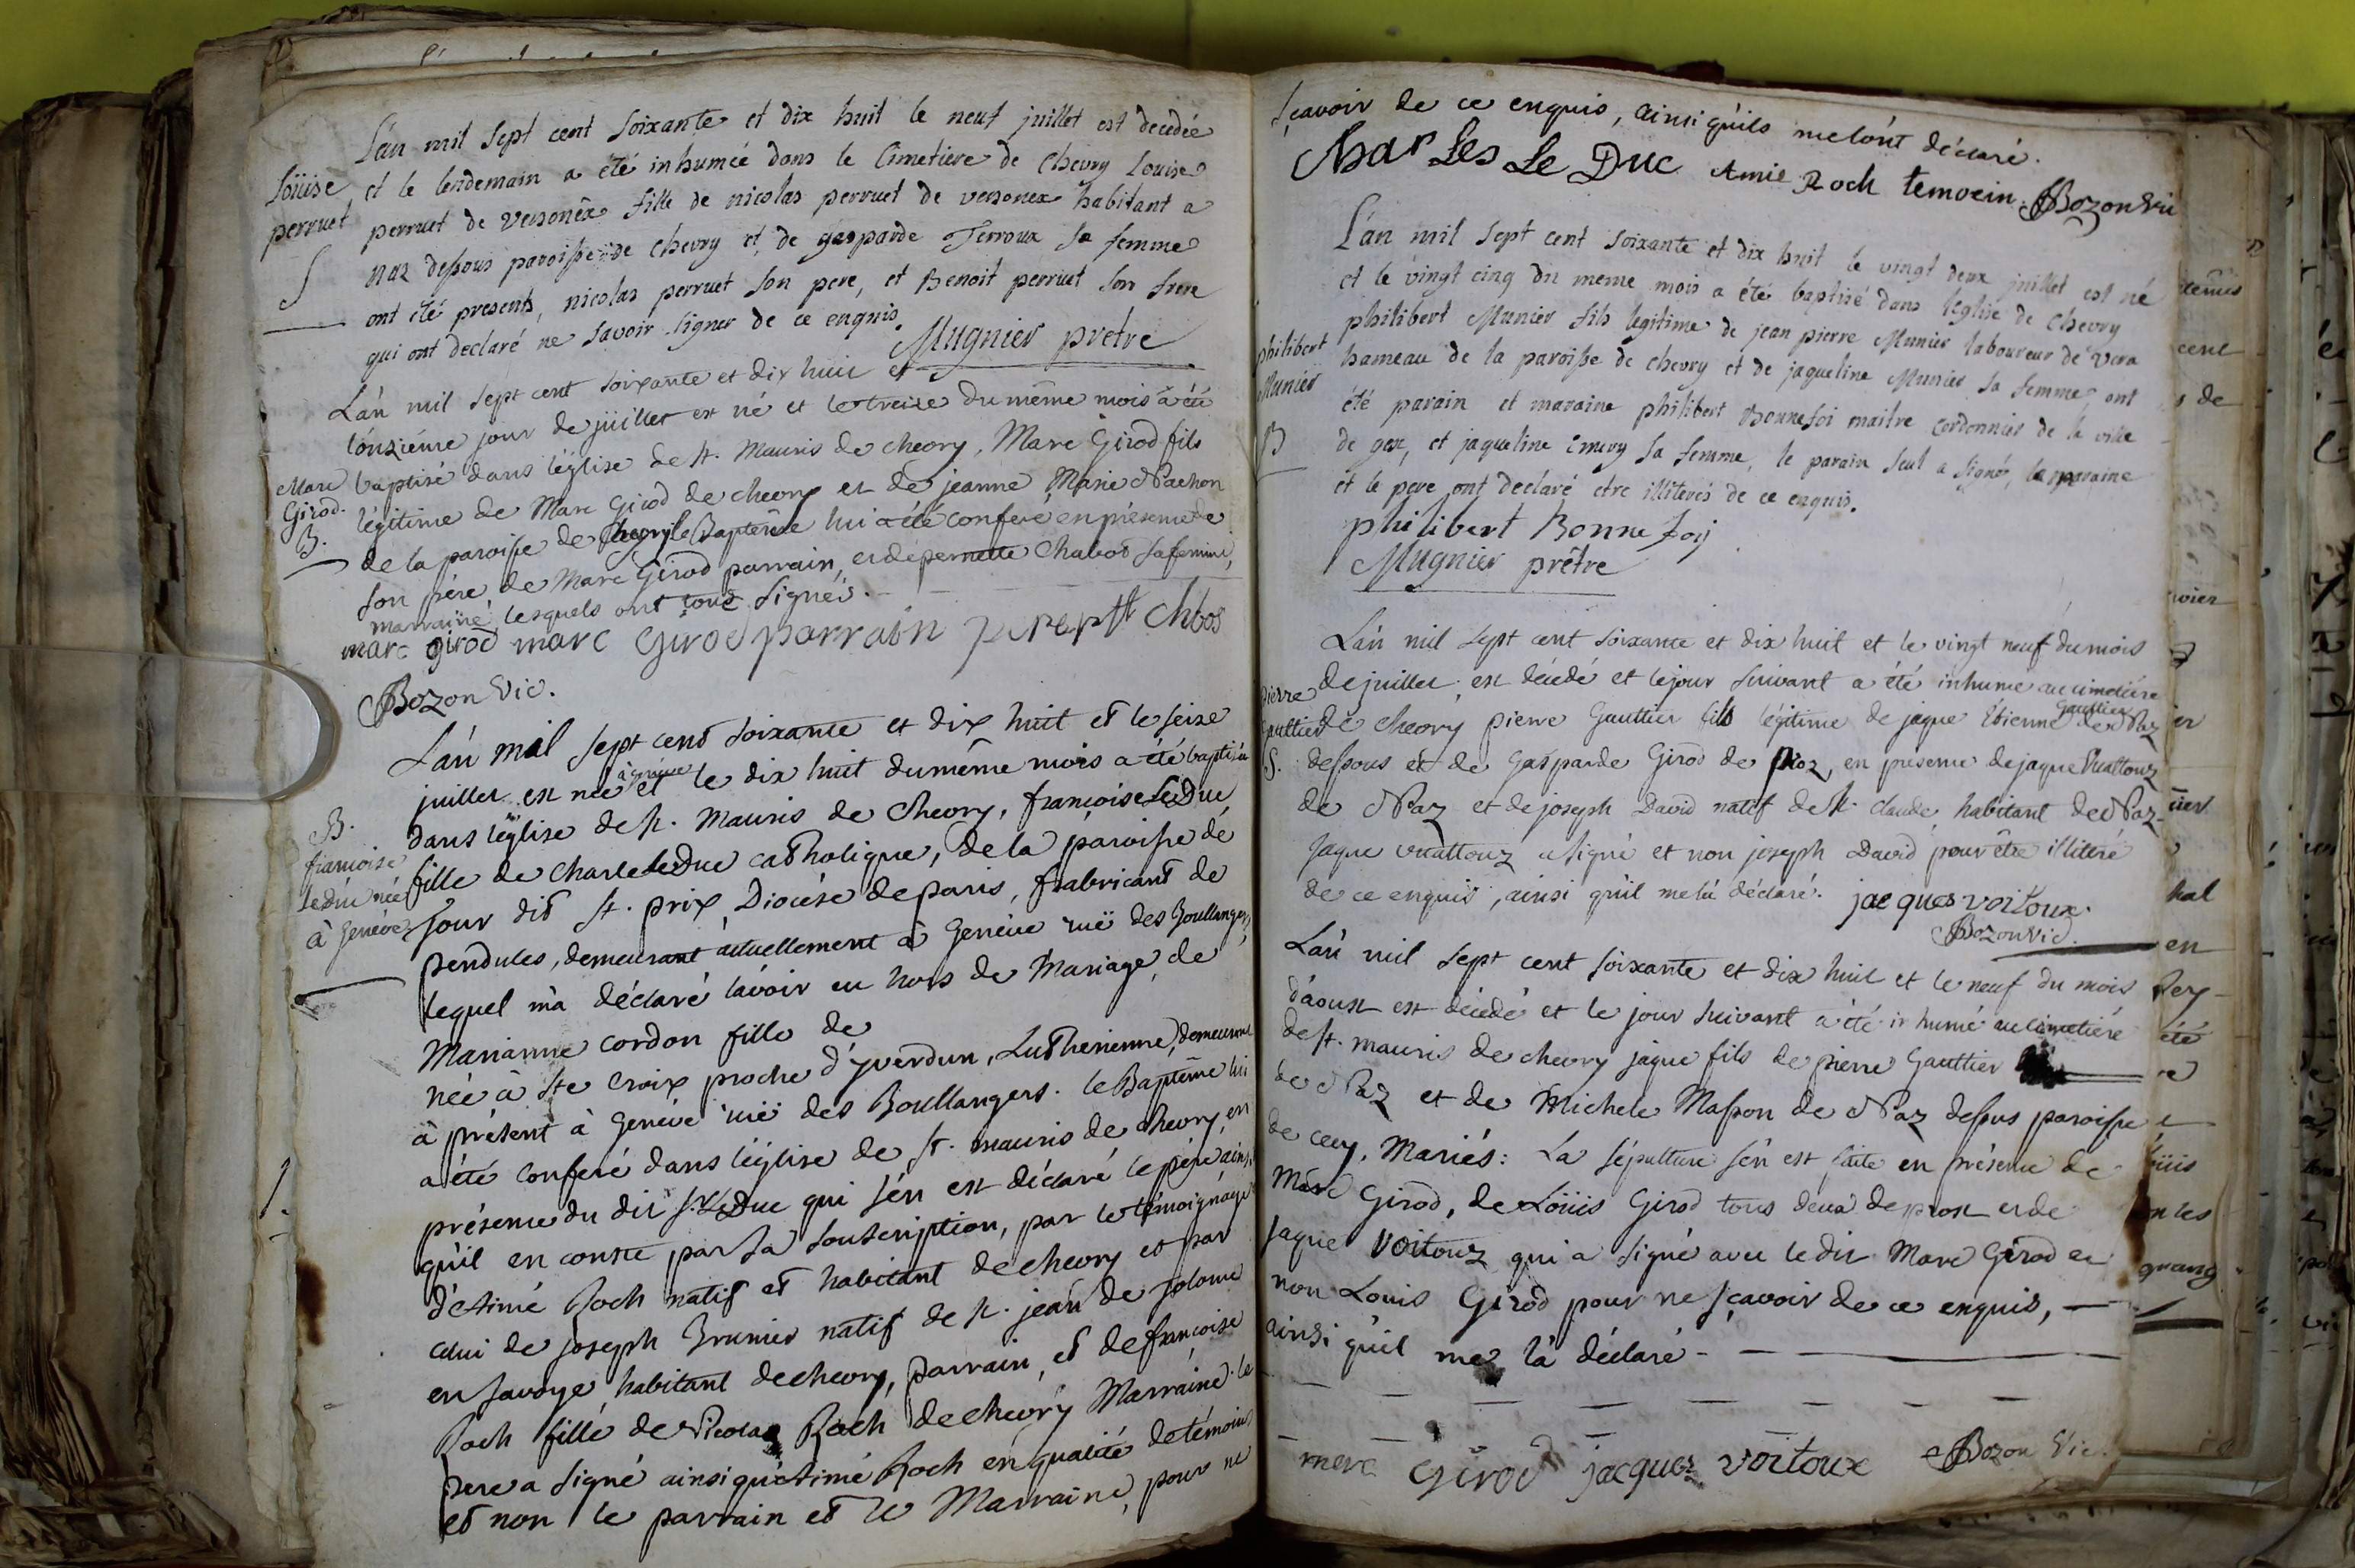 L'an mil sept cent soixante et dix huit le neuf juillet est decedée
Loüise
et le lendemain a été inhumée dans le Cimetiere de Chevry Louise
perruet
perruet de versonëx fille de nicolas perruet de versonex habitant a
S
naz dessous paroisse de chevry et de gasparde Terroux sa femme
ont été presents, nicolas perruet son pere, et Benoit perruet son frere
qui ont declaré ne savoir signer de ce enquis.
Mugnier prètre
L'an mil sept cent soixante et dix huit et
l'onzième jour de juillet est né et le treize du même mois a été
Marc
baptisé dans l'église de st. Mauris de chevry, Marc Girod fils
Girod.
légitime de Marc Girod de chevry et de jeanne Marie Pachon
B.
de la paroisse de Chevry le Baptême lui a été conferé en présence de
son père de Marc Girod parrain, et de pernette Chabod sa femme,
marraine, lesquels ont tous signés.
marc girod marc Girod parrain
Bozon Vic.
L'an mil sept cent soixante et dix huit et le seize
juillet est née à genève et le dix huit du même mois a été baptisée
B.
dans l'église de st. Mauris de Chevry, francoise LeDuc
francoise
fille de Charle LeDuc catholique, de la paroisse de
leduc née
jour dit st. prix Diocèse de paris, fabricant de
à Genève
pendules, demeurant actuellement à Genève ruë des Boullangers,
lequel m'a déclaré l'avoir eu hors de Mariage, de
Marianne cordon fille de
née à Ste Croix proche d'yverdun, Lutherienne, demeurant
à présent à Genève ruë des Boullangers. le Baptême lui
a été conferé dans l'église de st. mauris de chevry, en
présence du dit s. LeDuc qui s'en est déclaré le père ainsi
qu'il en conste par sa souscription, par le témoignage
d'Aimé Roch natif et habitant de chevry et par
celui de joseph Brunier natif de st. jean de
en savoye habitant de chevry, parrain, et de françoise
Roch fille de Nicolas Roch de chevry Marraine. le
pere a signé ainsi qu'Aimé Roch en qualité de témoin
et non le parrain et la Marraine, pour ne
sçavoir de ce enquis, ainsi qu'ils me l'ont déclaré.
Charles Le Duc Amie Roch temoein Bozon Vic
L'an mil sept cent soixante et dix huit le vingt deux juillet est né
et le vingt cinq du meme mois a été baptisé dans l'église de Chevry
philibert
philibert Munier fils legitime de jean pierre Munier laboureur de vera
Munier
hameau de la paroisse de chevry et de jaqueline Munier sa femme, ont
B
été parain et maraine philibert Bonnefoi maitre cordonnier de la ville
de gex, et jaqueline Emery sa femme, le parain seul a signé, la maraine
et le pere ont declaré etre illiterés de ce enquis.
philibert Bonnefoij
Mugnier prêtre
L'an mil sept cent soixante et dix huit et le vingt neuf du mois
Pierre
de juillet est décédé et le jour suivant a été inhumé au cimetiére
Gaultier
de chevry pierre Gaultier fils légitime de jaque Etienne Gaultier de Naz
S.
dessous et de Gasparde Girod de Naz, en présence de jaque Vuattouz
de Naz et de joseph David natif de st. claude habitant de Naz
Jaque vuattouz a signé et non joseph David pour être illiteré
de ce enquis, ainsi qu'il me l'a déclaré. jacques voitoux
Bozon Vic.
L'an mil sept cent soixante et dix huit et le neuf du mois
d'aoust est décédé et le jour suivant a été inhumé au cimetiére
de st. mauris de chevry jaque fils de pierre Gaultier
de Naz et de Michele Masson de Naz dessus paroisse
de cecy, Mariés: La sépulture s'en est faite en présence de
Marc Girod, de Loüis Girod tous deux de prost et de
jaque voitouz qui a signé avec le dit Marc Girod et
non Louis Girod pour ne sçavoir de ce enquis,
ainsi qu'il me l'a déclaré
merc Girod jacques voitoux Bozon Vic.